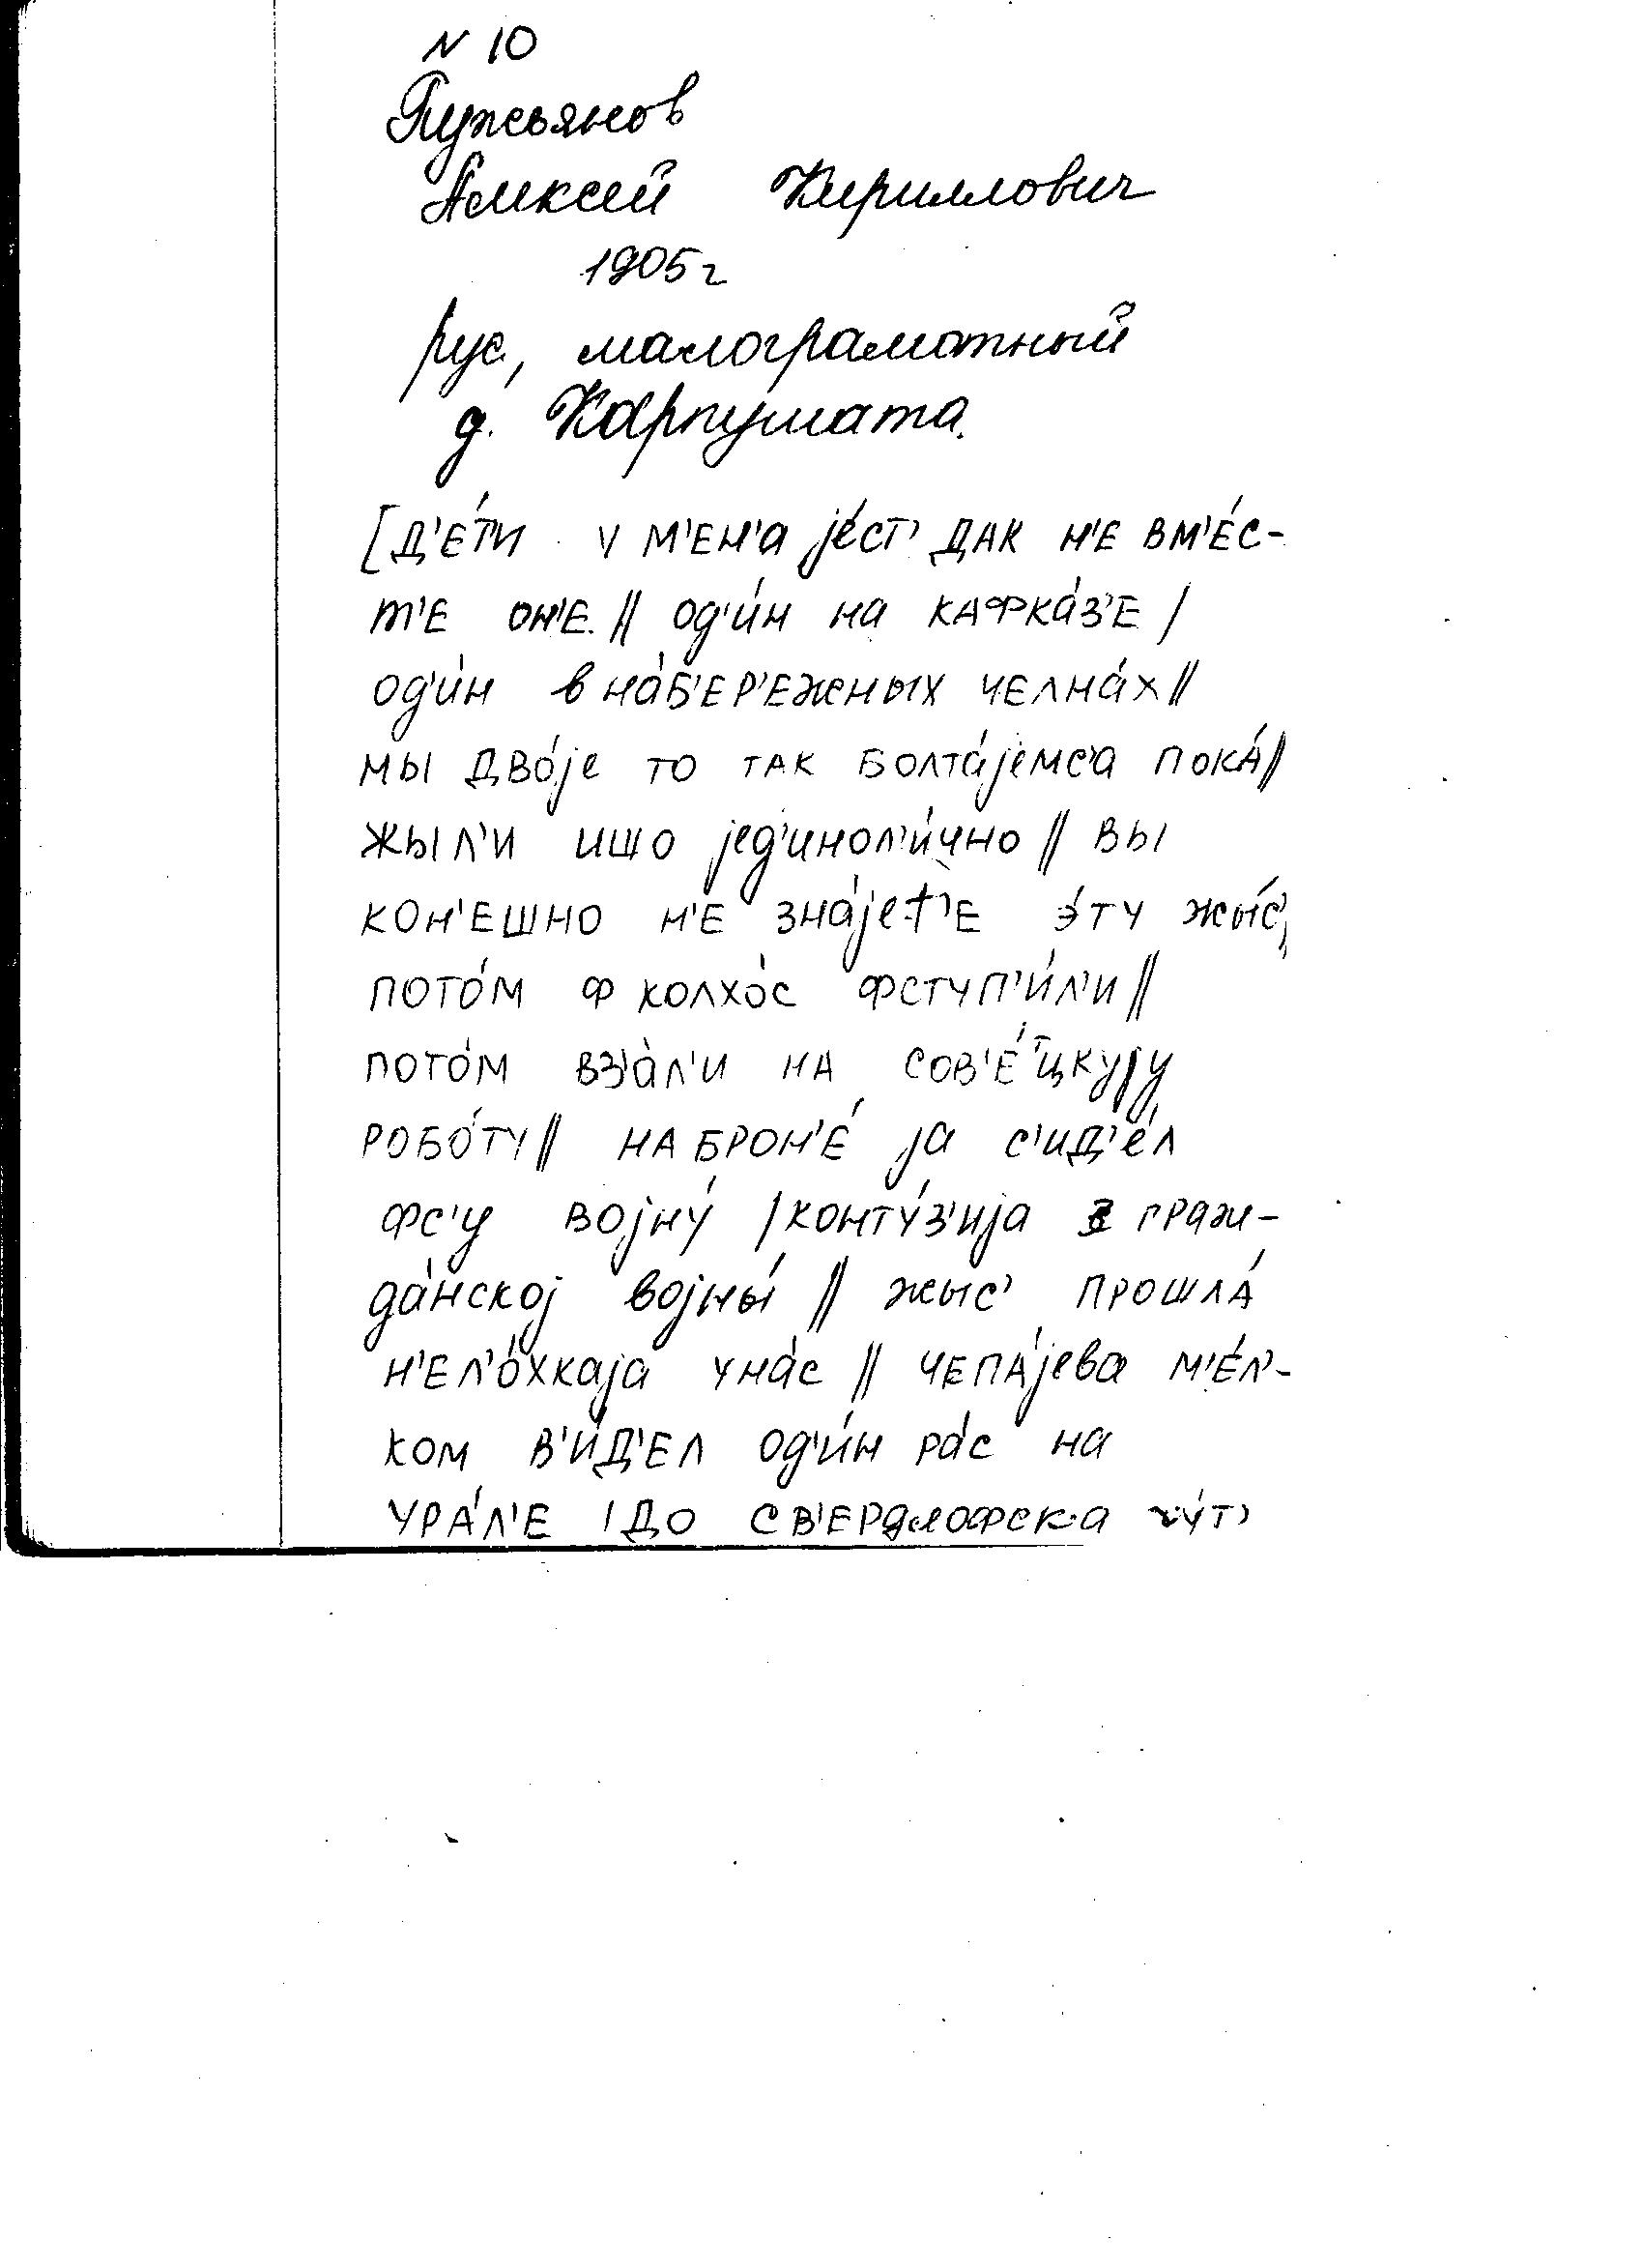 N 10
Пужьянов
Алексей Кириллович
1905г
рус, малограмотный
д. Карпушата.
[Д'Е́Т'И У М'ЕН'А jе́СТ' ДАК Н'Е ВМ'Е́С-
Т'Е ОН'Е. // ОД'И́Н НА КАФКА́З'Е /
ОД'И́Н В НА́Б'ЕР'ЕЖНЫХ ЧЕЛНА́Х //
МЫ ДВО́jЕ ТО ТАК БОЛТА́jЕМС'А ПОКА́ //
ЖЫЛ'И ИШО jЕД'ИНОЛ'И́ЧНО // ВЫ
КОН'ЕШНО Н'Е ЗНА́jЕТ'Е Э́ТУ ЖЫ́С',
ПОТО́М Ф КОЛХО́С ФСТУП'И́Л'И //
ПОТО́М ВЗ'А́Л'И НА СОВ'Е́ТЦКУjУ
РОБО́ТУ // НА БРОН'Е́ jА С'ИД'Е́Л
ФС'У ВОJНУ́ / КОНТУ́З'ИjА З ГРАЖ-
ДА́НСКОj ВОjНЫ́ // ЖЫС' ПРОШЛА́
Н'ЕЛ'О́ХКАjА У НА́С // ЧЕПА́jЕВА М'Е́Л'-
КОМ В'И́Д'ЕЛ ОД'И́Н РА́С НА
УРА́Л'Е / ДО СВ'ЕРДЛОФСКА ЧУ́Т'